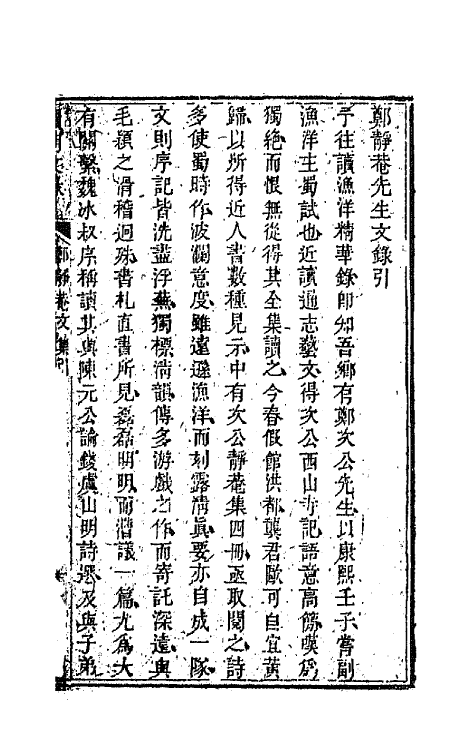 鄭靜菴先生文錄引
予往讀漁洋精華錄卽知吾鄉有鄭次公先生以康熙壬子嘗副
漁洋主蜀試也近讀通志藝文得次公西山寺記語意高簡嘆爲
獨絶而恨無從得其全集讀之今春假館洪都龔君歐可自宜黃
歸以所得近人書數種見示中有次公靜菴集四冊亟取閱之詩
多使蜀時作波瀾意度雖遠遜漁洋而刻露淸眞要亦自成一隊
文則序記皆洗盡浮蕪獨標淸韻傳多游戲之作而寄託深遠與
毛穎之滑稽迥殊書札直書所見磊磊明明而潛議一篇尤爲大
有關繫魏冰叔序稱讀其與陳元公論錢虞山明詩選及與子弟
鄭靜菴文集引